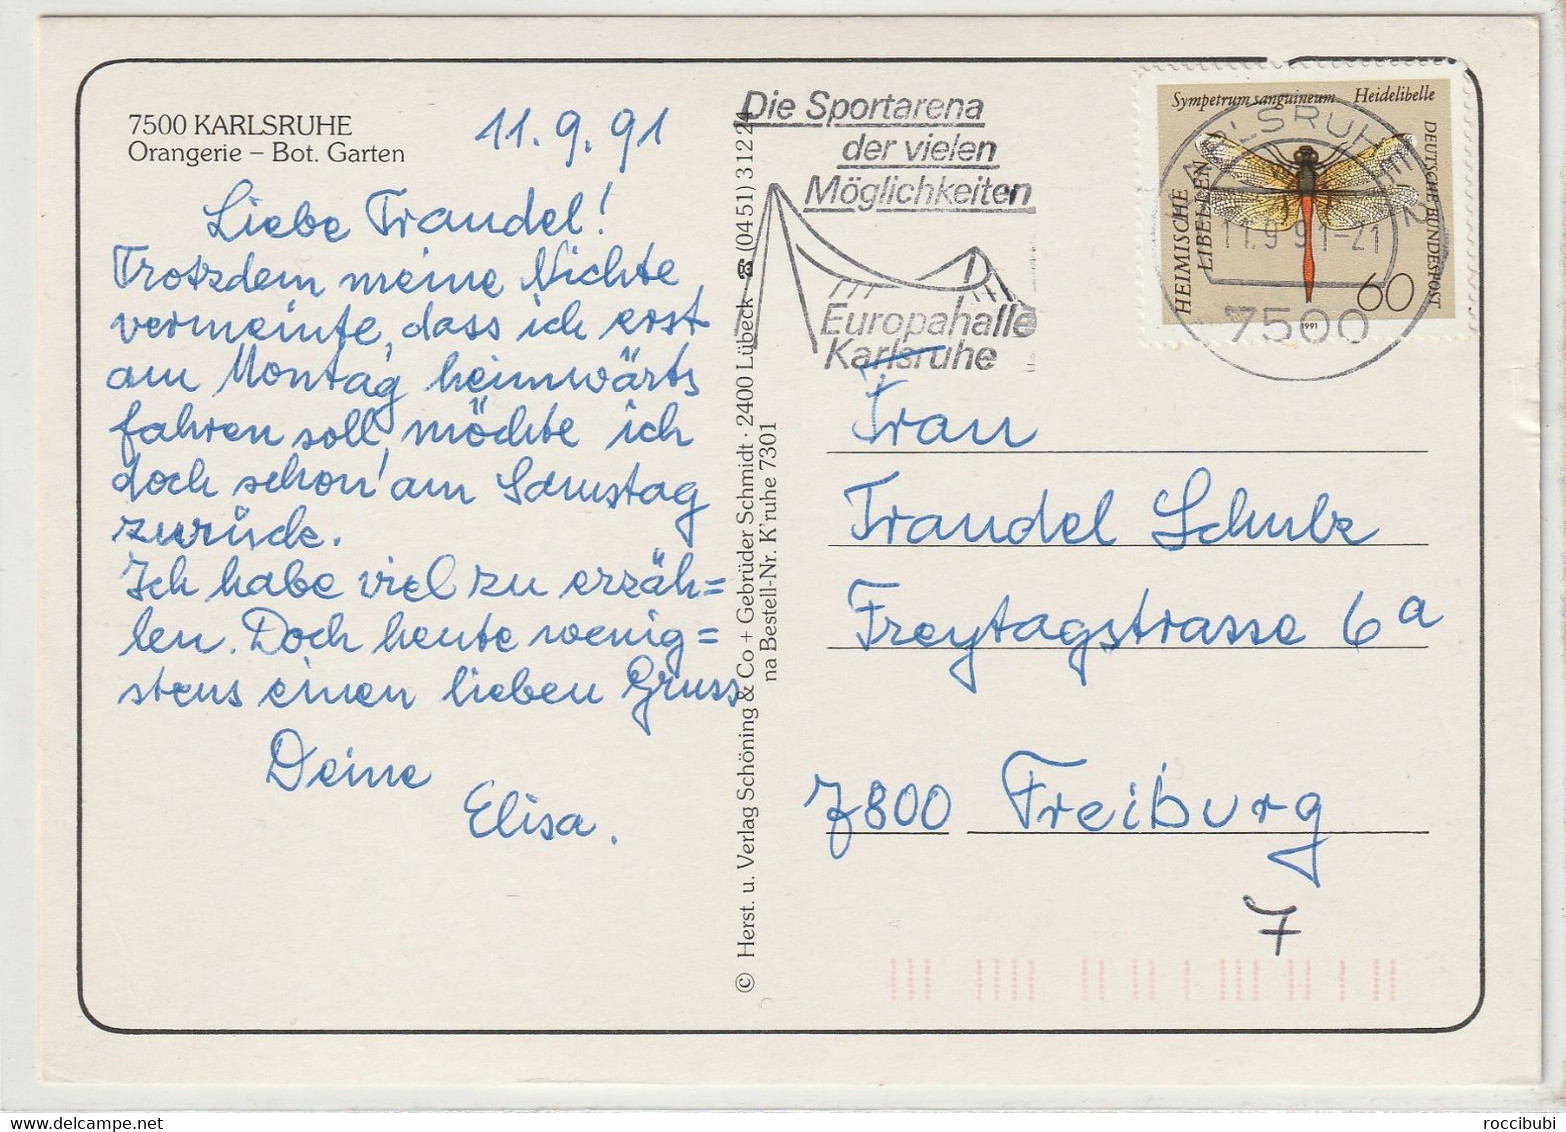 7500 KARLSRUHE
Orangerie – Bot. Garten
11.9.91
Liebe Traudel!
Trotzdem meine Nichte
vermeinte, dass ich erst
am Montag heimwärts
fahren soll, möchte ich
doch schon am Samstag
zurück.
Ich habe viel zu erzäh=
len. Doch heute wenig=
stens einen lieben Gruss
Deine
Elisa.
© Herst. u. Verlag Schöning & Co + Gebrüder Schmidt · 2400 Lübeck ☎ (0451) 31224
na Bestell-Nr. K'ruhe 7301
Die Sportarena
der vielen
Möglichkeiten
Europahalle
Karlsruhe
Sympetrum sanguineum Heidelibelle
HEIMISCHE
LIBELLEN
DEUTSCHE BUNDESPOST
60
1991
KARLSRUHE 2
11.9.91-21
7500
Frau
Traudel Schulz
Freytagstrasse 6a
7800 Freiburg
7
roccibubi